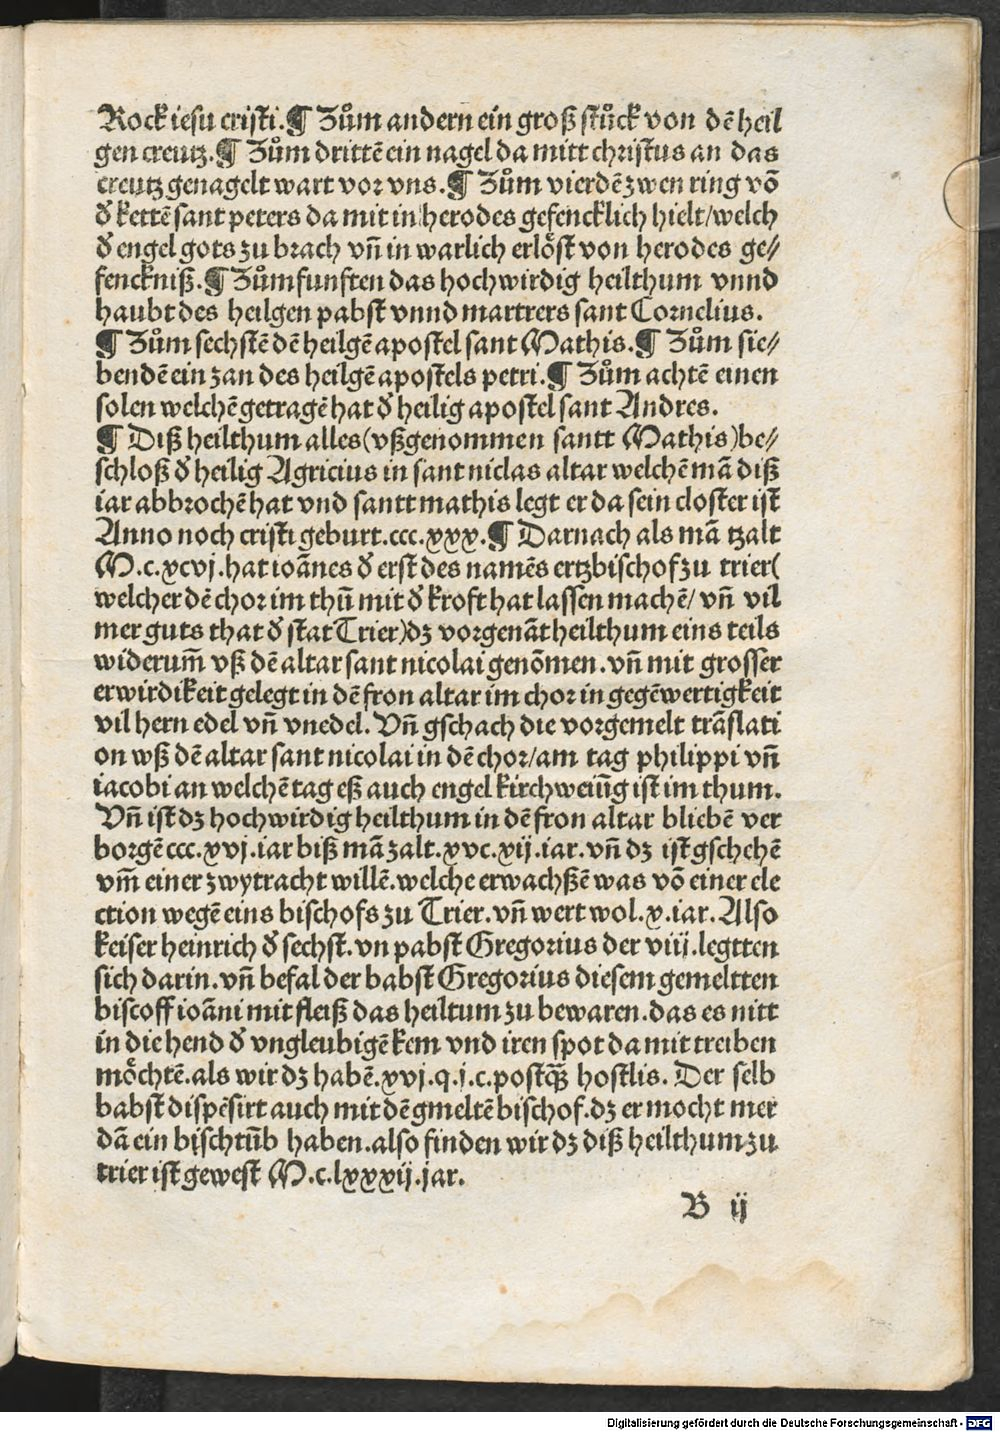 Rock iesu cristi.¶ Zům andern ein groß stůck von dē heil
gen creutz.¶ Zům drittē ein nagel da mitt christus an das
creutz genagelt wart vor vns.¶ Zům vierdē zwen ring vō
ď kettē sant peters da mit in herodes gefencklich hielt/welch
ď engel gots zu brach vn̄ in warlich erlöst von herodes ge⸗
fenckniß.¶ Zům funften das hochwirdig heilthum vnnd
haubt des heilgen pabst vnnd martrers sant Cornelius.
¶ Zům sechstē dē heilgē apostel sant Mathis.¶ Zům sie⸗
bendē ein zan des heilgē apostels petri.¶ Zům achtē einen
solen welchē getragē hat ď heilig apostel sant Andres.
¶ Diß heilthum alles(vßgenommen santt Mathis)be⸗
schloß ď heilig Agricius in sant niclas altar welchē mā diß
iar abbrochē hat vnd santt mathis legt er da sein closter ist
Anno noch cristi geburt.ccc.xxx.¶ Darnach als mā tzalt
M.c.xcvj.hat ioānes ď erst des namēs ertzbischof zu trier(
welcher dē chor im thū mit ď kroft hat lassen machē/ vn̄ vil
mer guts that ď stat Trier)dz vorgenāt heilthum eins teils
widerum̄ vß dē altar sant nicolai genōmen.vn̄ mit grosser
erwirdikeit gelegt in dē fron altar im chor in gegēwertigkeit
vil hern edel vn̄ vnedel. Vn̄ gschach die vorgemelt trāslati
on wß dē altar sant nicolai in dē chor/am tag philippi vn̄
iacobi an welchē tag eß auch engel kirchweiūg ist im thum.
Vn̄ ist dz hochwirdig heilthum in dē fron altar bliebē ver
borgē ccc.xvj.iar biß mā zalt.xvc.xij.iar.vn̄ dz ist gschehē
vm̄ einer zwytracht willē.welche erwachßē was vō einer ele
ction wegē eins bischofs zu Trier.vn̄ wert wol.x.iar.Also
keiser heinrich ď sechst.vn pabst Gregorius der viij.legtten
sich darin.vn̄ befal der babst Gregorius diesem gemeltten
biscoff ioāni mit fleiß das heiltum zu bewaren.das es nitt
in die hend ď vngleubigē kem vnd iren spot da mit treiben
möchtē.als wir dz habē.xvj.q.j.c.postꝙ̄ hostlis. Der selb
babst dispēsirt auch mit dē gmeltē bischof.dz er mocht mer
dā ein bischtūb haben.also finden wir dz diß heilthum zu
trier ist gewest M.c.lxxxij.jar.
B ij
Digitalisierung gefördert durch die Deutsche Forschungsgemeinschaft - DFG